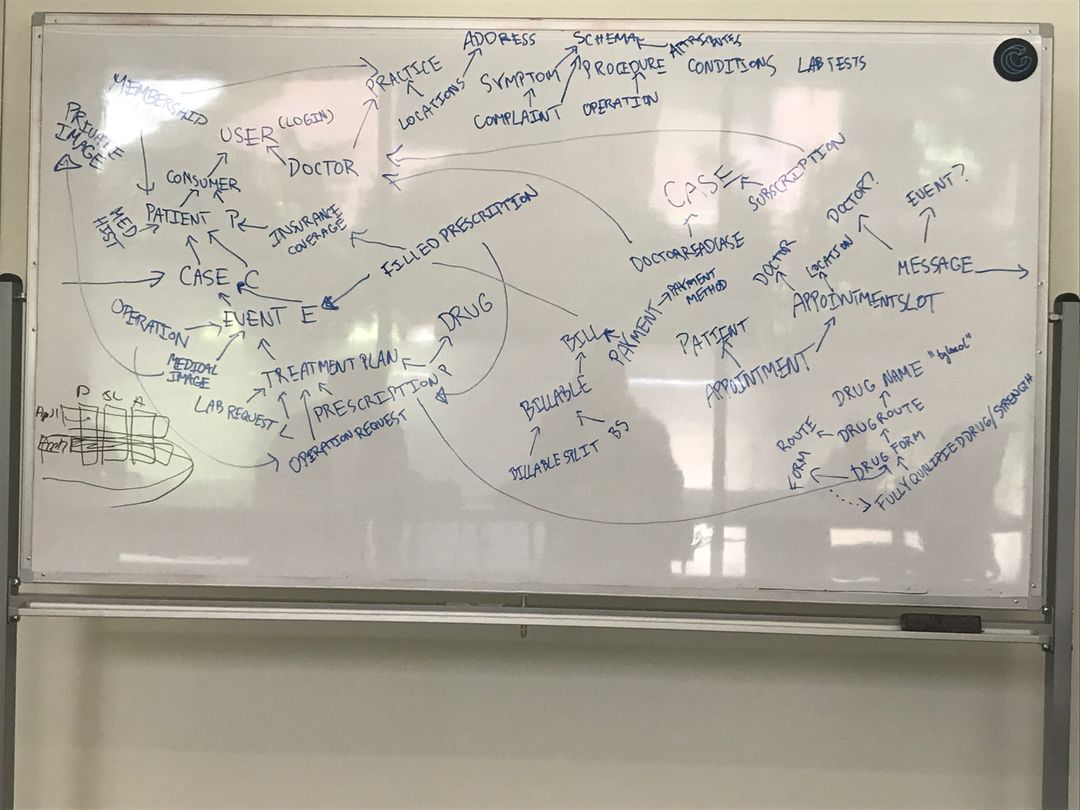 ADDRESS
SCHEMA
ATTRIBUTES
PRACTICE
LOCATIONS
SYMPTOM
PROCEDURE
CONDITIONS
LAB TESTS
COMPLAINT
OPERATION
MEMBERSHIP
PRIVATE
IMAGE
USER (LOGIN)
DOCTOR
CONSUMER
MED
HIST
PATIENT P
INSURANCE
COVERAGE
FILLED PRESCRIPTION
CASE C
OPERATION
EVENT E
MEDICAL
IMAGE
TREATMENT PLAN
DRUG
LAB REQUEST
PRESCRIPTION P
OPERATION REQUEST
CASE
SUBSCRIPTION
DOCTORREADCASE
DOCTOR?
EVENT?
MESSAGE
DOCTOR
LOCATION
APPOINTMENTSLOT
PAYMENT
METHOD
PAYMENT
BILL
BILLABLE
BILLABLE SPLIT
BS
PATIENT
APPOINTMENT
DRUG NAME
DRUG ROUTE
ROUTE
DRUG FORM
FORM
FULLY QUALIFIED DRUG/STRENGTH